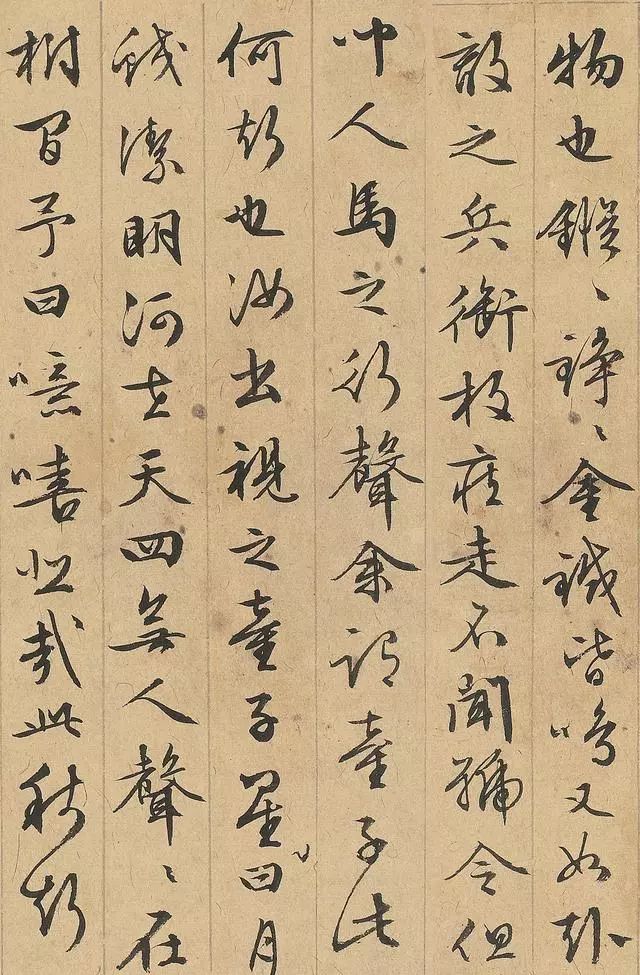 物也鏦〻錚〻金鐵皆鳴又如赴
敵之兵銜枚疾走不聞號令但
聞人馬之行聲余謂童子此
何聲也汝出視之童子星曰月
皎潔明河在天四無人聲〻在
樹間予曰噫嘻悲哉此秋聲